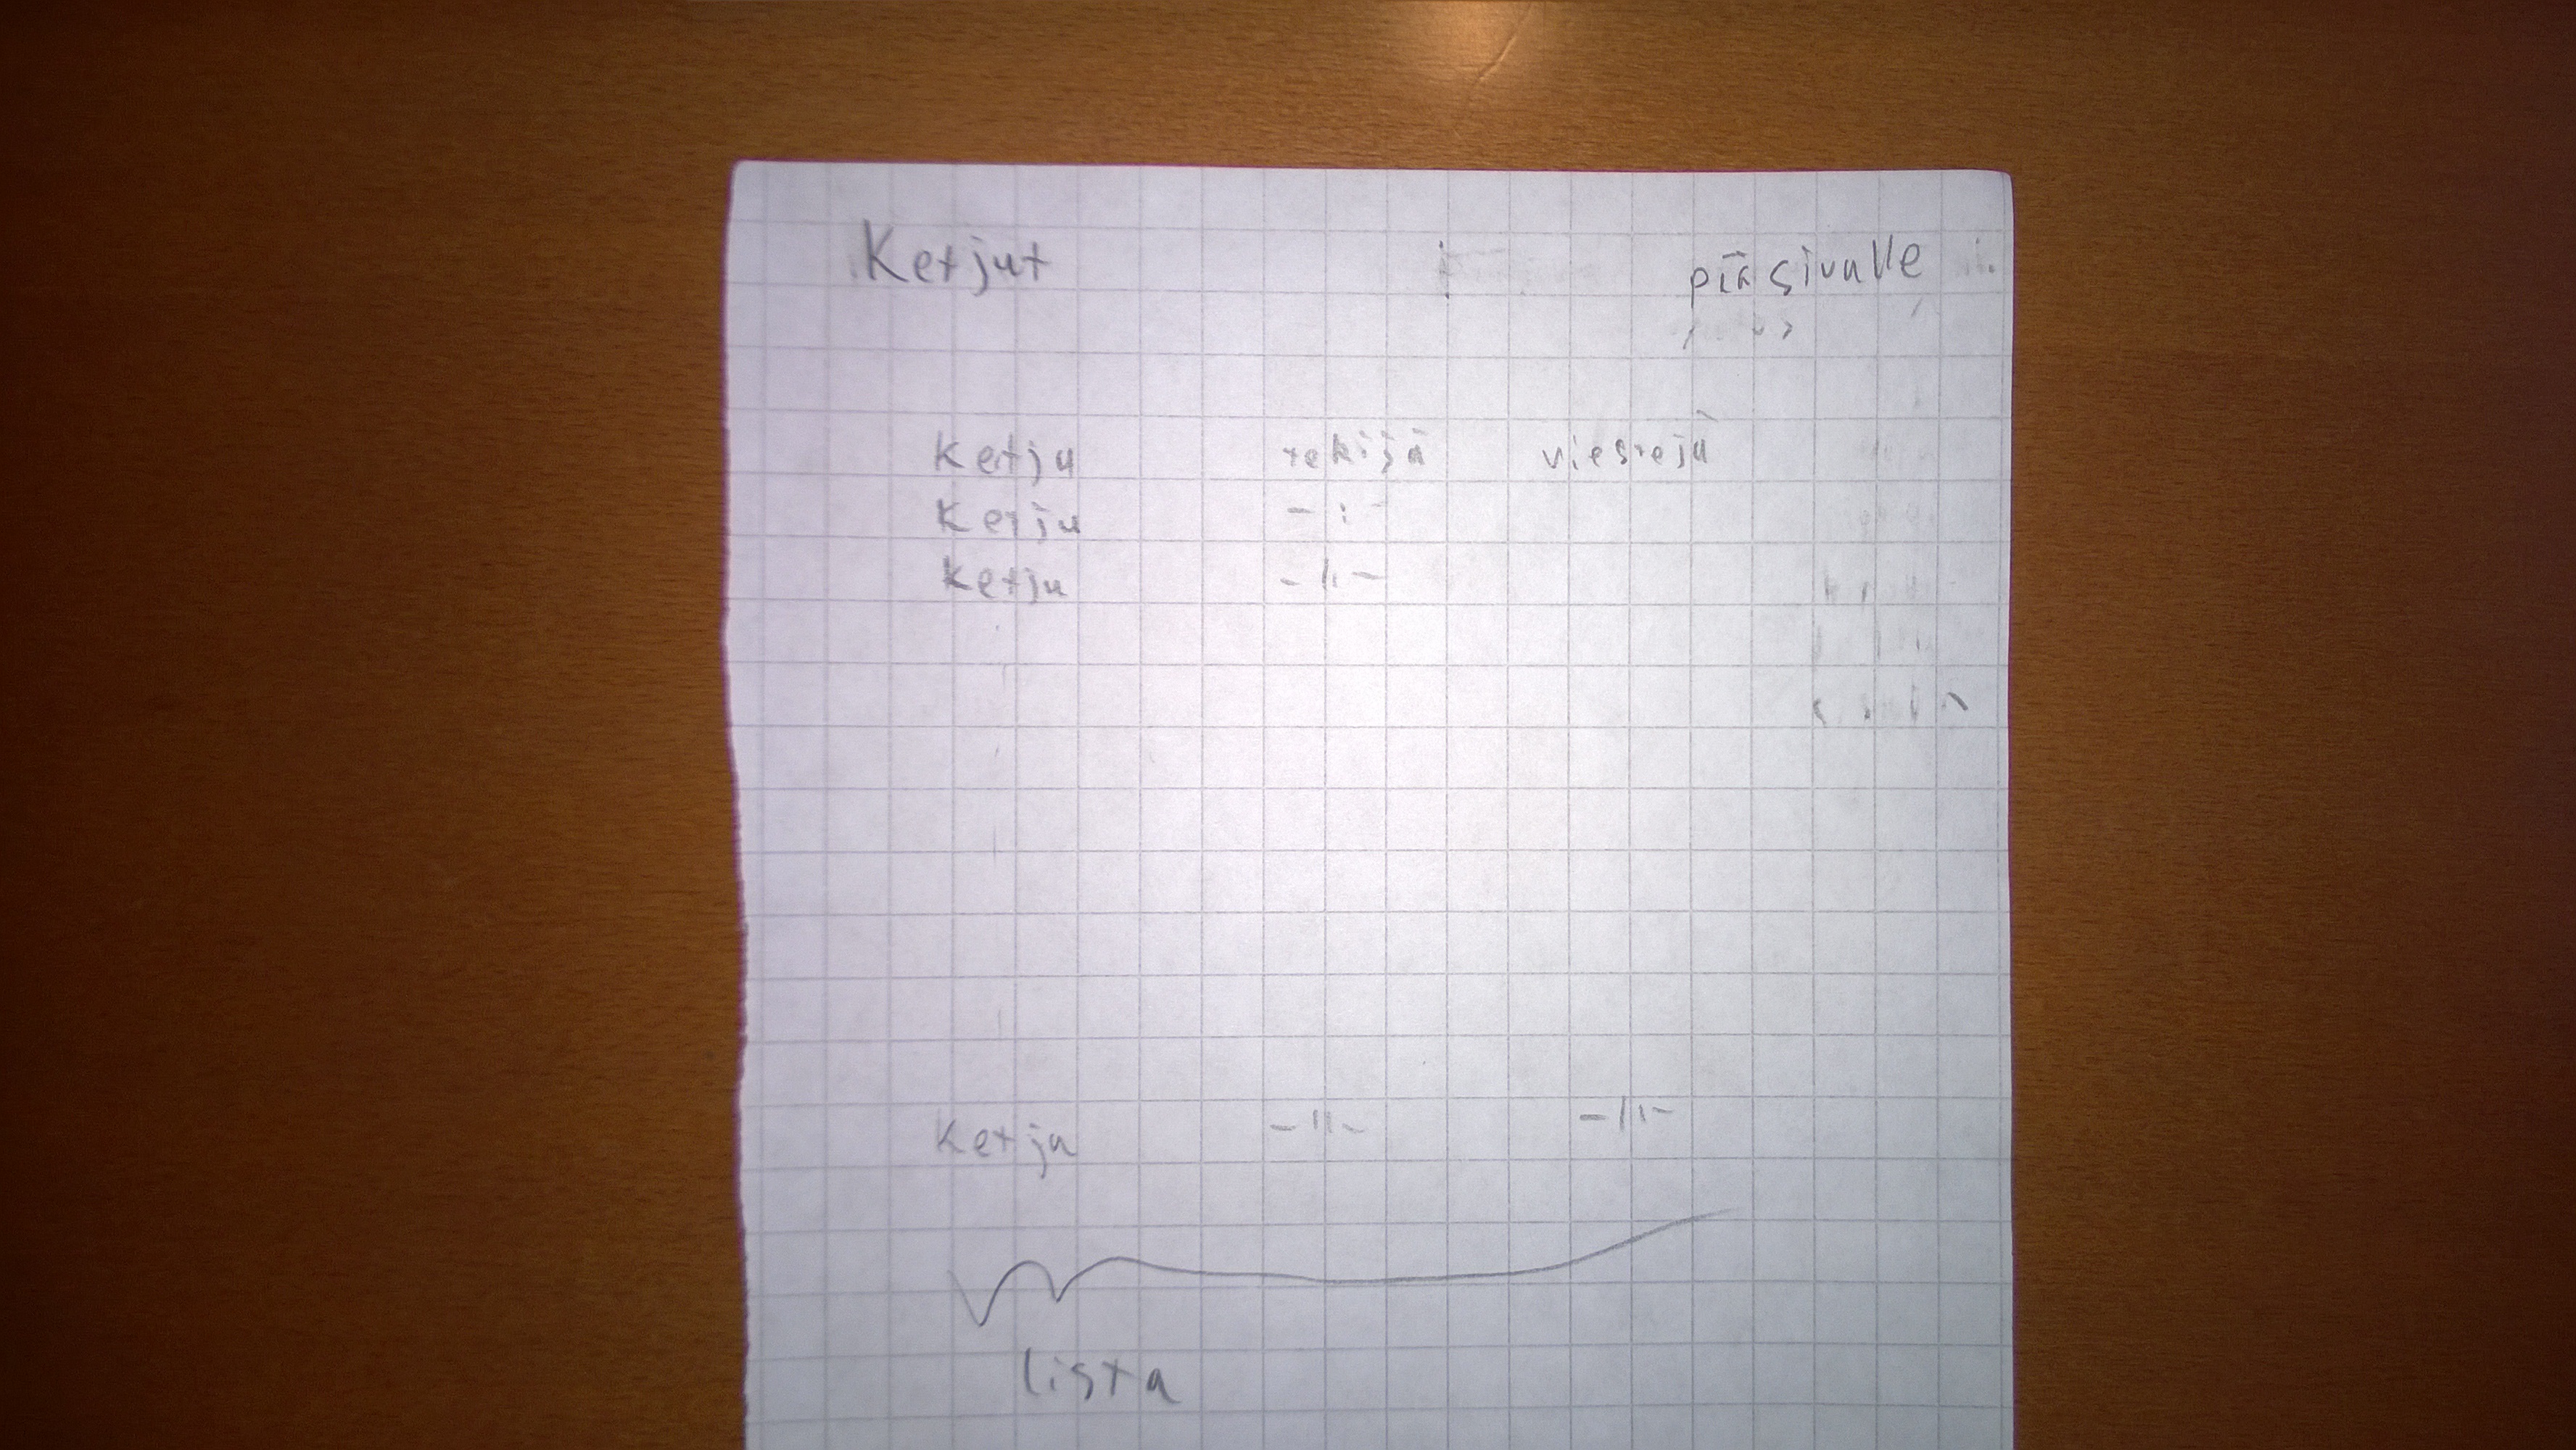 Ketjut pääsivulle
Ketju tekijä viestejä
Ketju - " -
Ketju - " -
Ketju - " - - " -
lista